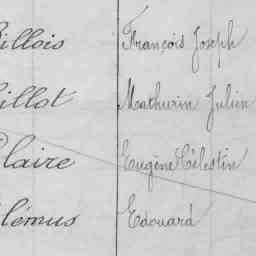 illois François Joseph
illot Mathurin Julien
laire Eugène Célestin
lémus Edouard